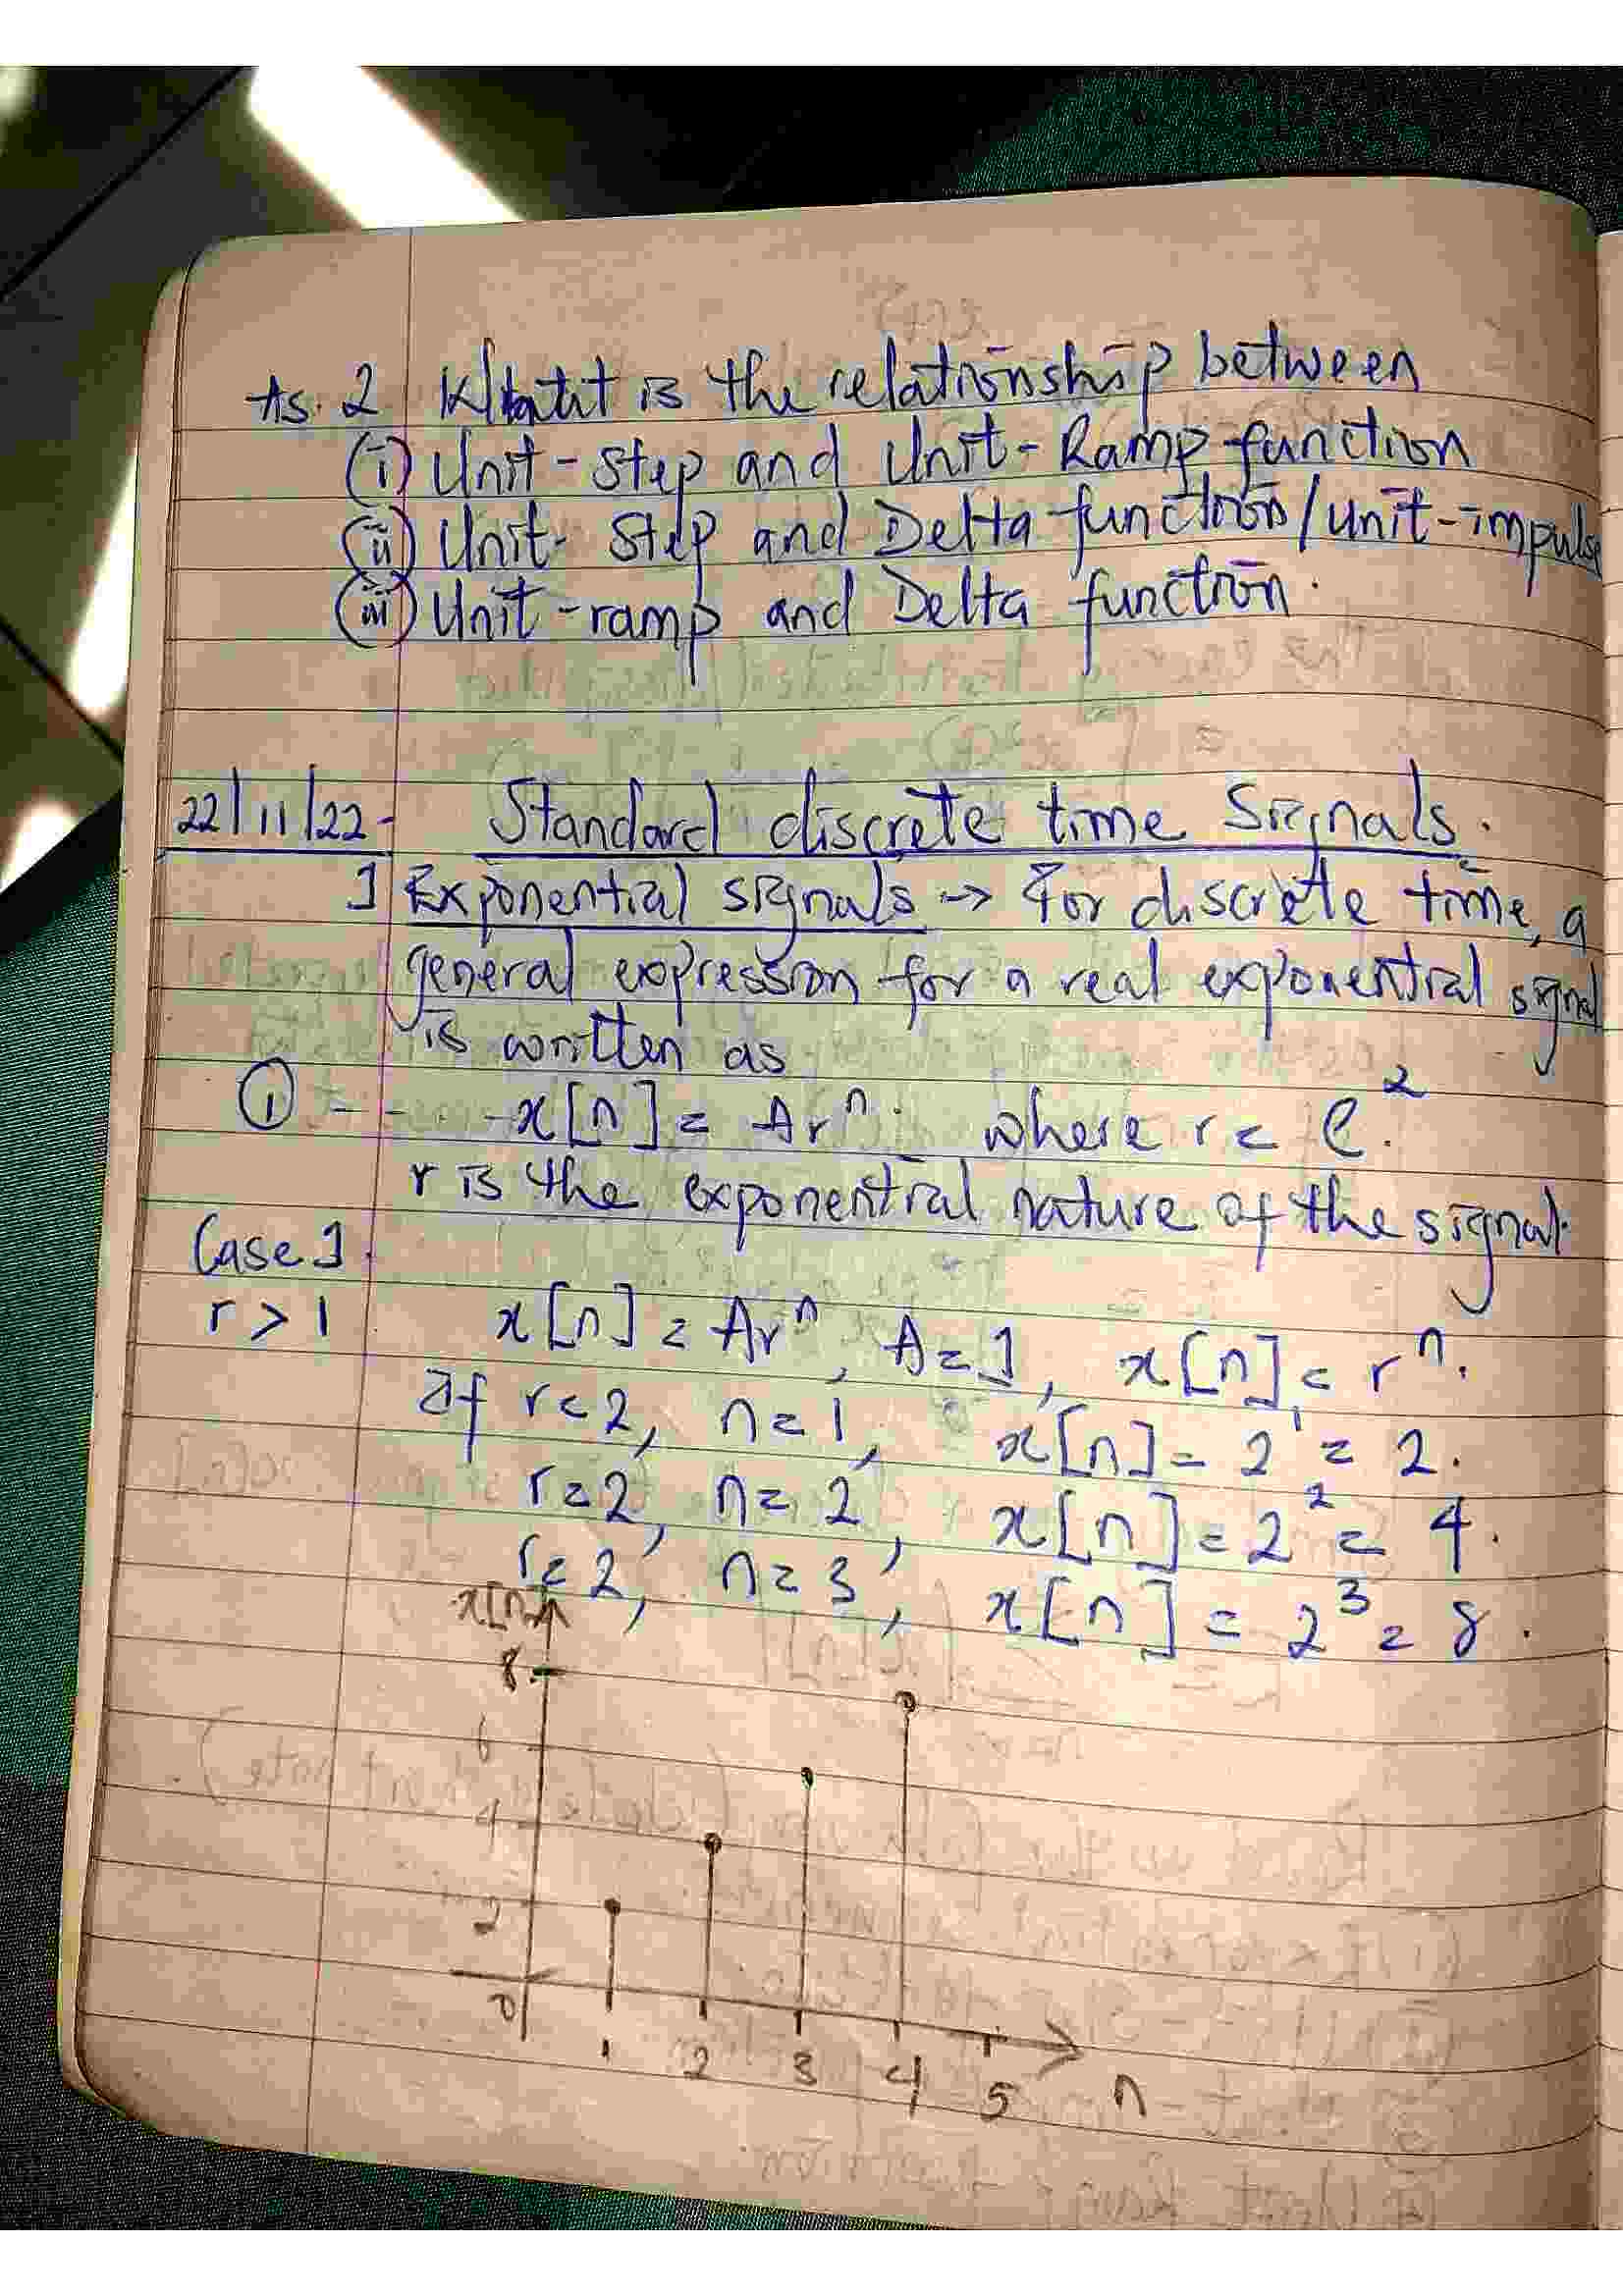 As. 2 What is the relationship between
(i) Unit-Step and Unit-Ramp function
(ii) Unit-Step and Delta function/unit-impulse
(iii) Unit-ramp and Delta function.
22/11/22- Standard discrete time Signals.
1 Exponential signals → For discrete time, a
general expression for a real exponential signal
is written as
① - - - - x[n] = Ar^n. where r = e^2.
r is the exponential nature of the signal.
Case 1.
r > 1 x[n] = Ar^n, A = 1, x[n] = r^n.
If r = 2, n = 1, x[n] = 2^1 = 2.
r = 2, n = 2, x[n] = 2^2 = 4.
r = 2, n = 3, x[n] = 2^3 = 8.
x[n]
8
6
4
2
0
1 2 3 4 5 n